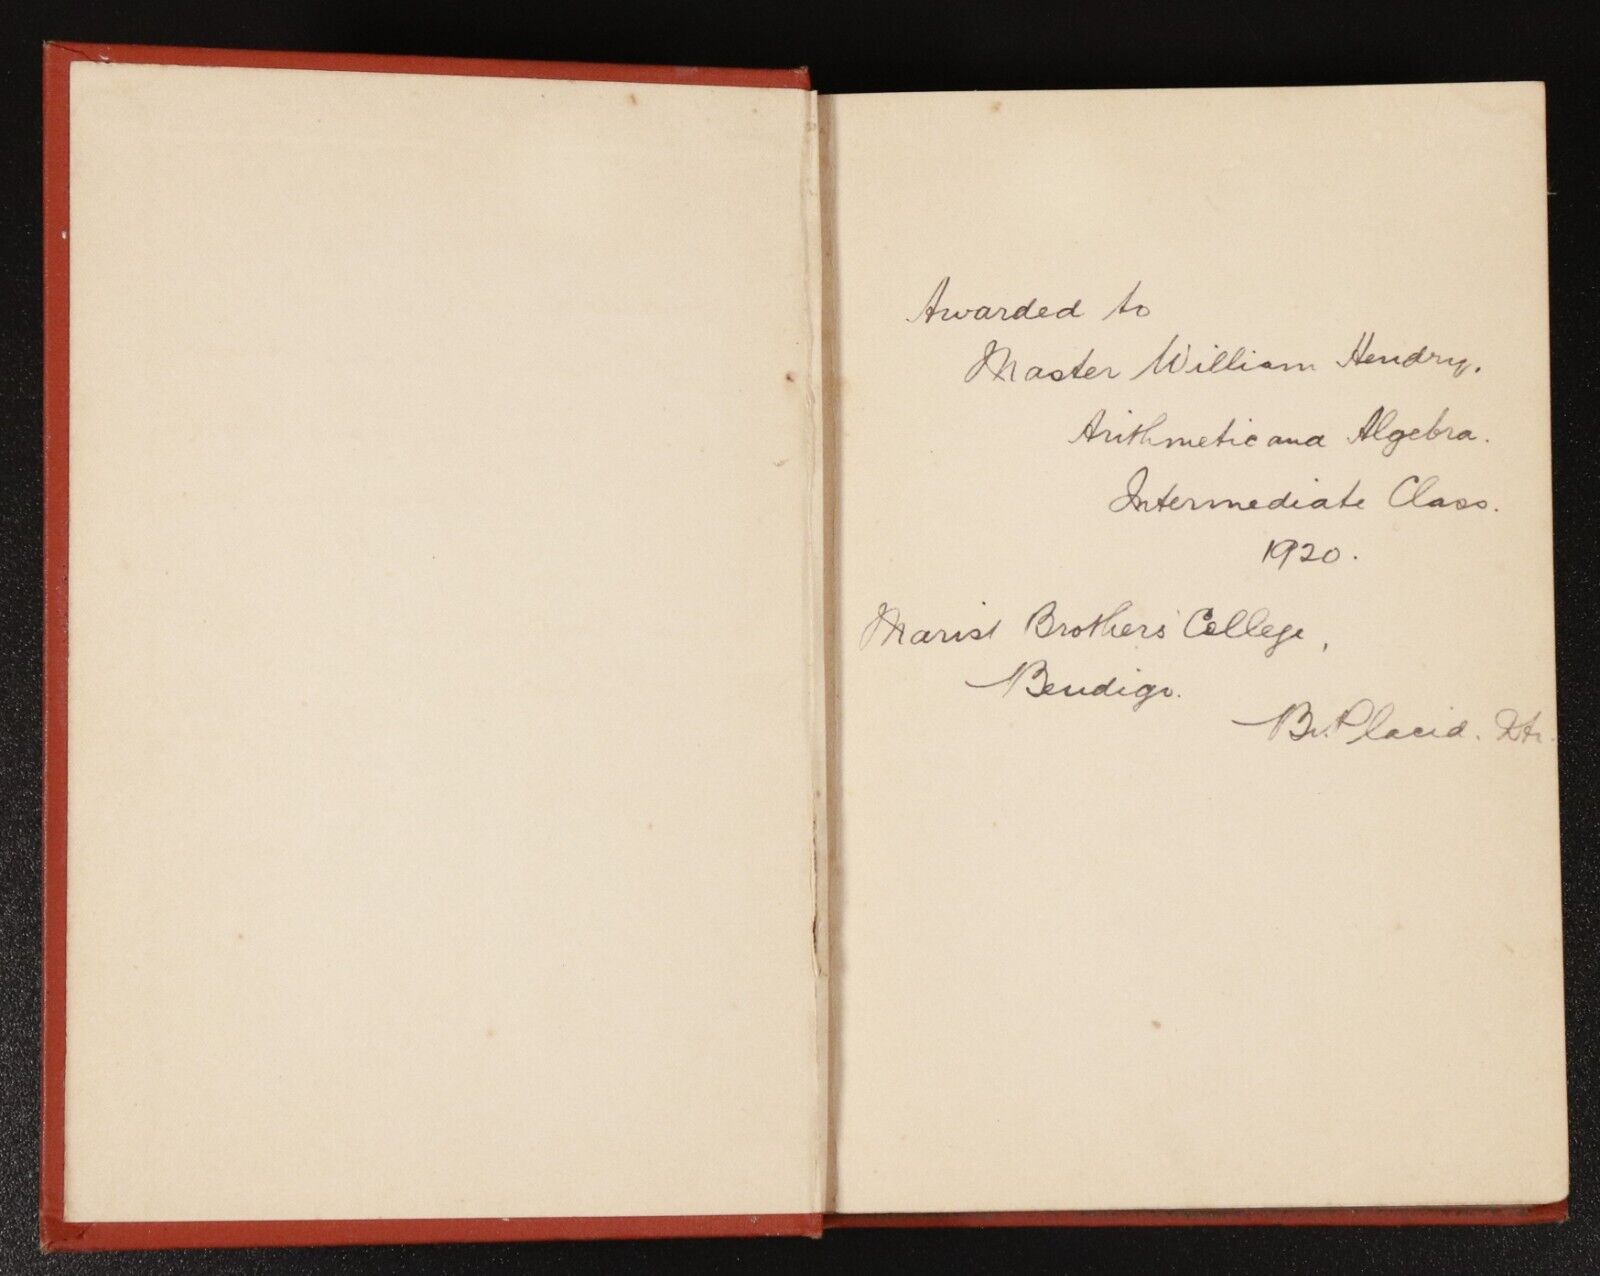 Awarded to
Master William Hendry.
Arithmetic and Algebra.
Intermediate Class.
1920.
Marist Brothers' College,
Bendigo.
Br. Placid.